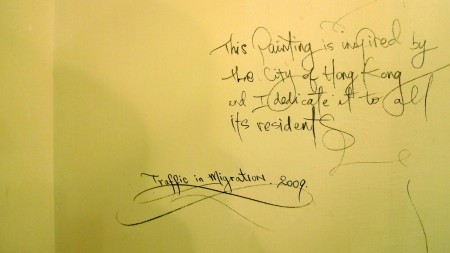 This Painting is inspired by
the City of Hong Kong
and I dedicate it to all
its residents
Traffic in Migration. 2009.